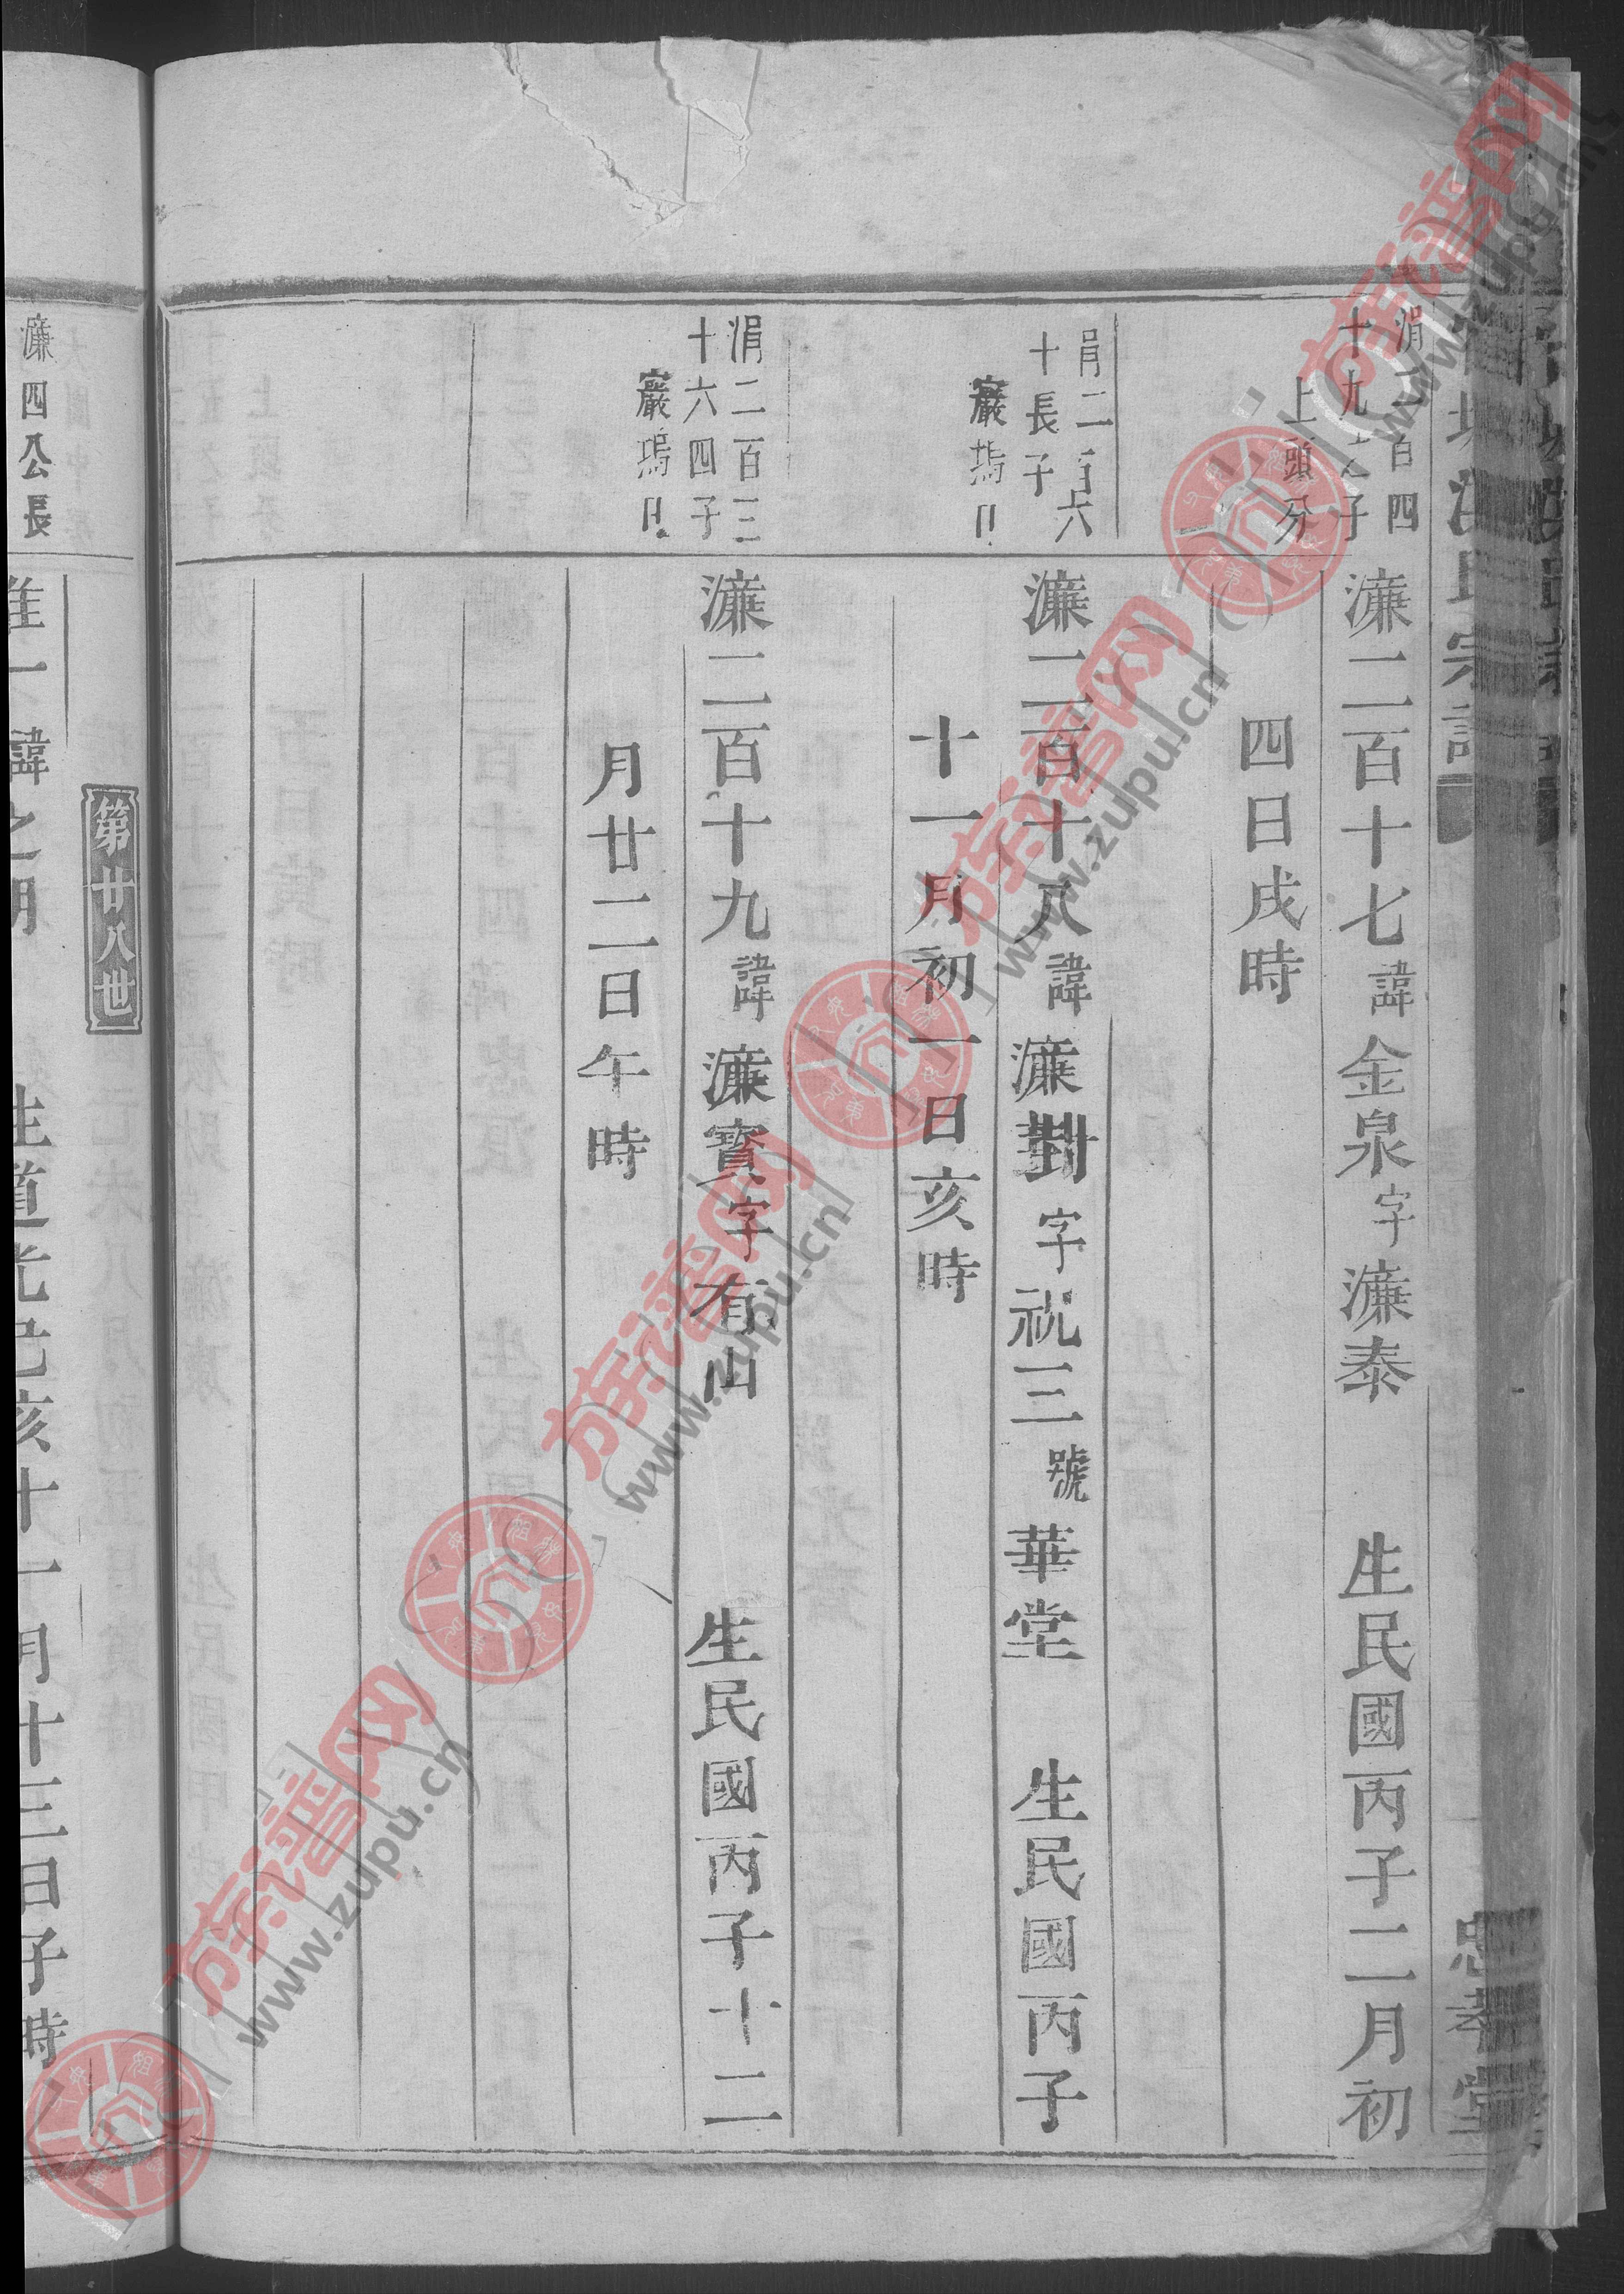 氏宗譜
忠孝堂
涓二百四
十九之子
上頭分
濂二百十七諱金泉字濂泰 生民國丙子二月初
四日戌時
涓二百六
十長子
巖塢口
濂二百十八諱濂對字祝三號華堂 生民國丙子
十一月初一日亥時
涓二百三
十六四子
巖塢口
濂二百十九諱濂寶字有山 生民國丙子十二
月廿二日午時
第廿八世
濂四公長
淮一諱之 生道光己亥十一月十三日子時
族谱网 www.zupu.cn
族谱网 www.zupu.cn
族谱网 www.zupu.cn
族谱网 www.zupu.cn